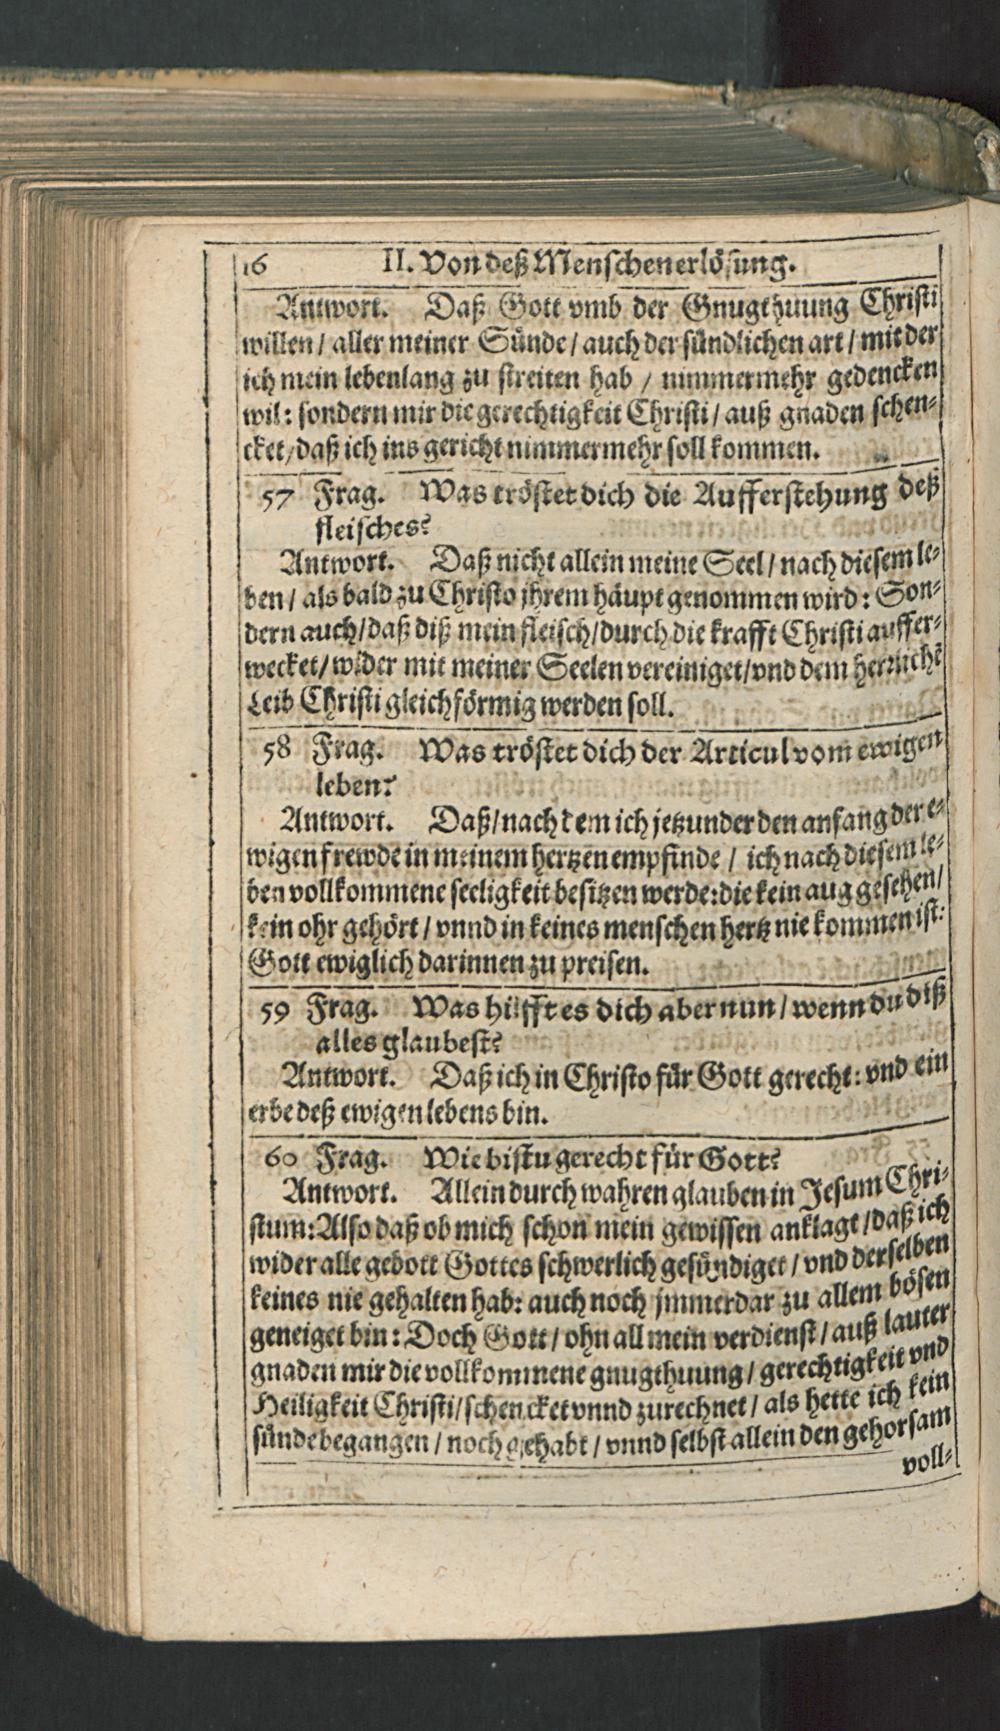 16 II. Von deß Menschen erlösung.
Antwort. Daß Gott vmb der Gnugthuung Christi
willen / aller meiner Sünde / auch der sündlichen art / mit der
ich mein lebenlang zu streiten hab / nimmermehr gedencken
wil: sondern mir die gerechtigkeit Christi / auß gnaden schen-
cket / daß ich ins gericht nimmermehr soll kommen.
57 Frag. Was tröstet dich die Aufferstehung deß
fleisches?
Antwort. Daß nicht allein meine Seel / nach diesem le-
ben / als bald zu Christo jhrem häupt genommen wird: Son-
dern auch / daß diß mein fleisch / durch die krafft Christi auffer-
wecket / wider mit meiner Seelen vereiniget / vnd dem herrlichẽ
Leib Christi gleichförmig werden soll.
58 Frag. Was tröstet dich der Articul vom ewigen
leben?
Antwort. Daß / nach dem ich jetzunder den anfang der e-
wigen frewde in meinem hertzen empfinde / ich nach diesem le-
ben vollkommene seeligkeit besitzen werde: die kein aug gesehen /
kein ohr gehört / vnnd in keines menschen hertz nie kommen ist:
Gott ewiglich darinnen zu preisen.
59 Frag. Was hilfft es dich aber nun / wenn du diß
alles glaubest?
Antwort. Daß ich in Christo für Gott gerecht: vnd ein
erbe deß ewigen lebens bin.
60 Frag. Wie bistu gerecht für Gott?
Antwort. Allein durch wahren glauben in Jesum Chri-
stum: Also daß ob mich schon mein gewissen anklagt / daß ich
wider alle gebott Gottes schwerlich gesündiget / vnd derselben
keines nie gehalten hab: auch noch jmmerdar zu allem bösen
geneiget bin: Doch Gott / ohn all mein verdienst / auß lauter
gnaden mir die vollkommene gnugthuung / gerechtigkeit vnd
Heiligkeit Christi / schencket vnnd zurechnet / als hette ich kein
sünde begangen / noch gehabt / vnnd selbst allein den gehorsam
voll-